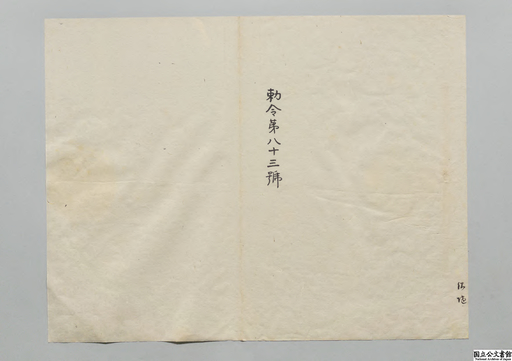 勅令第八十三號
国立公文書館
National Archives of Japan